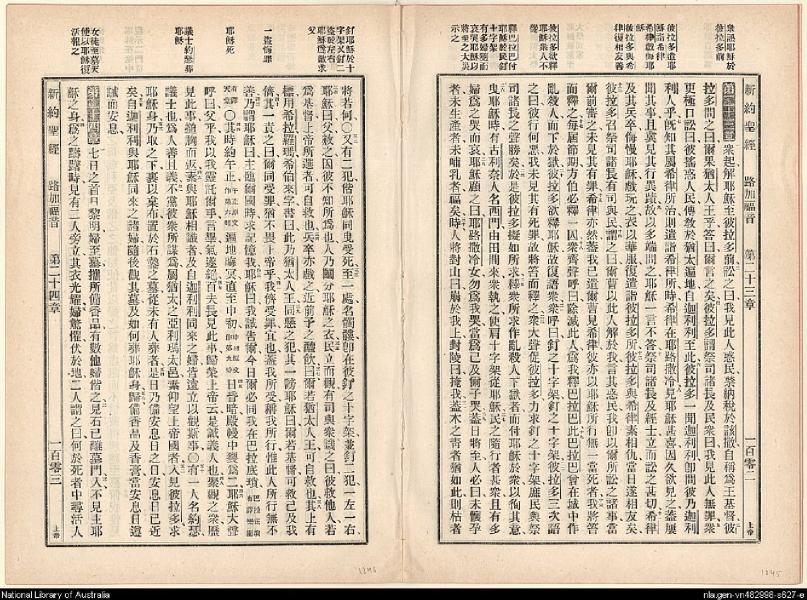 新約聖經 路加福音 第二十三章 一百零二 上帝
衆訴耶穌於
彼拉多前
彼拉多遣耶
穌詣希律
希律戲侮耶
穌
彼拉多與希
律復相友善
彼拉多欲釋
耶穌衆人不
釋巴拉巴付
耶穌於
十字架
有多婦
哀哭耶穌以
將至之大災
示之
第二十三章 衆起解耶穌至彼拉多前訴之曰我見此人惑民禁納稅於該撒自稱爲王基督彼
拉多問之曰爾果猶太人王乎答曰爾言之矣彼拉多謂祭司諸長及民衆曰我見此人無罪衆
更極口訟曰彼搖惑人民傳教於猶太遍地自迦利利至此彼拉多一聞迦利利卽問彼乃迦利
利人乎旣知其屬希律所治則遣詣希律所時希律在耶路撒冷見耶穌甚喜因久欲見之蓋屢
聞其事且冀見其行異蹟故以多端問之耶穌一言不答祭司諸長及經士立而訟之甚切希律
及其兵卒侮慢耶穌戲玩之衣以華服復遣詣彼拉多所彼拉多與希律素相仇當日遂相友矣
彼拉多召祭司諸長有司與民謂之曰爾曹以此人解於我言其惑民我卽以爾所訟之諸事當
爾前審之未見其有罪希律亦然蓋我已遣爾曹見希律彼亦以耶穌所行無一當死者我將笞
而釋之每屆節期方伯必釋一囚衆齊聲呼曰除滅此人爲我釋巴拉巴此巴拉巴曾在城中作
亂殺人而下於獄彼拉多欲釋耶穌故復語衆衆呼曰釘之十字架釘之十字架彼拉多三次語
之曰彼行何惡我未見其有死罪故將笞而釋之衆大聲促彼拉多力求釘之十字架庶民與祭
司諸長之聲勝矣於是彼拉多擬如所求釋衆所求作亂殺人下獄者而付耶穌於衆以徇其意
曳耶穌時有古利奈人名西門由田間來衆執之使肩十字架從耶穌民之隨行者甚衆且有多
婦爲之哭而哀耶穌顧之曰耶路撒冷女勿爲我哭當爲己及爾子哭蓋日將至人必曰未懷孕
者未生產者未哺乳者福矣時人將對山曰崩於我上對陵曰掩我蓋木之青者猶如此則枯者
新約聖經 路加福音 第二十四章 一百零三 上帝
釘耶穌於十
字架又釘二
盜於左右
耶穌爲敵求
父
一盜悔罪
耶穌死
議士約瑟葬
耶穌
女徒至墓天
使以耶穌復
活報之
將若何又有二犯偕耶穌同曳受死至一處名髑髏卽在彼釘之十字架並釘二犯一左一右
耶穌曰父赦之因彼不知所爲也人乃鬮分耶穌之衣民立而觀有司與衆譏之曰彼救他人若
爲基督上帝所選者可自救也兵卒亦戲之近前予之醯飲曰爾若猶太人王可自救也其上有
標用希拉羅瑪希伯來字書曰此乃猶太人王同懸之犯其一謗耶穌曰爾若基督可救己及我
儕其一責之曰爾同受罪猶不畏上帝乎我儕受罪宜也蓋我所受稱我所行惟此人所行無不
善乃謂耶穌曰主臨爾國時求記憶我耶穌曰我誠告爾今日爾必同我在巴拉底瑣
其時約午正遍地晦冥直至申初日昏暗殿幔中裂爲二耶穌大聲
呼曰父乎我以我靈託爾手言畢氣遂絕百夫長見此事歸榮上帝云是誠義人也聚觀之衆
見此事搥胸而返素與耶穌相識者及自迦利利同來之婦皆遠立以觀斯事有一人名約瑟
議士也爲人善且義不黨彼衆所謀爲屬猶太之亞利瑪太邑素仰望上帝國者入見彼拉多求
耶穌身乃取之下裹以枲布置於石鑿之墓從未有人葬者是日乃備安息日之日安息日已近
矣自迦利利與耶穌同來之諸婦隨後觀其墓及如何葬耶穌身歸備香品及香膏當安息日遵
誡而安息
第二十四章 七日之首日黎明婦至墓攜所備香品有數他婦偕之見石已離墓門入不見主耶
穌之身爲之躊躇時見有二人旁立其衣光耀婦驚懼伏於地二人謂之曰何於死者中尋活人